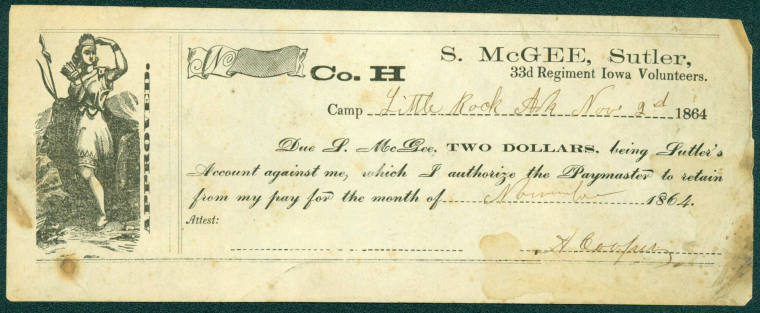 APPROVED.
N
Co. H
S. McGEE, Sutler,
33d Regiment Iowa Volunteers.
Camp Little Rock Ark Nov 2d 1864
Due S. McGee, TWO DOLLARS, being Sutler's
Account against me, which I authorize the Paymaster to retain
from my pay for the month of November 1864.
Attest:
A Cooper